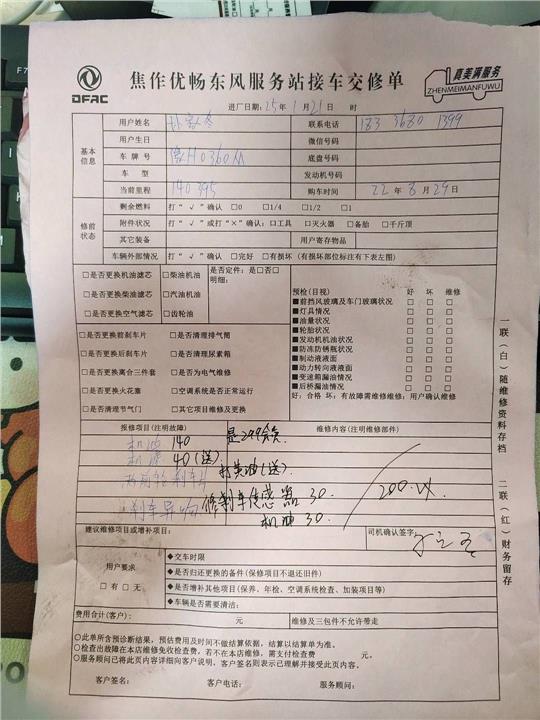 DFAC
焦作优畅东风服务站接车交修单
真美满服务
ZHENMEIMANFUWU
进厂日期：25年1月21日 时
基本信息
用户姓名 联系电话 183 3680 1399
用户生日 微信号码
车牌号 豫H0360M 底盘号码
车型 发动机号码
当前里程 140395 购车时间 22年8月29日
修前状态
剩余燃料 打“√”确认 □0 □1/4 □1/2 □1
附件状况 打“√”或打“×”确认：□工具 □灭火器 □备胎 □千斤顶
其它装备 用户寄存物品
车辆外部情况 打“√”确认 □完好 □有损坏（有损部位标注有下表左图）
□是否更换机油滤芯 □柴油机油 是否定件：是□否□
明细：
□是否更换柴油滤芯 □汽油机油
□是否更换空气滤芯 □齿轮油
□是否更换前刹车片 □是否清理排气筒
□是否更换后刹车片 □是否清理尿素箱
□是否更换离合三件套 □是否为电气维修
□是否更换火花塞 □空调系统是否正常运行
□是否清理节气门 □其它项目维修及更换
预检(目视) 好 坏 维修
■前挡风玻璃及车门玻璃状况 □ □ □
■灯具情况 □ □ □
■油量状况 □ □ □
■轮胎状况 □ □ □
■发动机机油状况 □ □ □
■防冻防锈瓶状况 □ □ □
■制动液液面 □ □ □
■动力转向液液面 □ □ □
■变速箱漏油情况 □ □ □
■后桥漏油情况 □ □ □
好：合格 坏：有故障需维修维修：用户确认维修
报修项目(注明故障) 维修内容(注明维修部件)
机油 140 是299会员
机滤 40(送)
打黄油(送)
刹车异响 修刹车传感器 30. 200.以
机油 30.
建议维修项目或增补项目： 司机确认签字：
用户要求
□有 □无
◆交车时限
◆是否归还更换的备件(保修项目不退还旧件)
◆是否增补其他项目(保养、年检、空调系统检查、加装项目等)
◆车辆是否需要清洁：
费用合计(客户)： 元 维修及三包件不允许带走
○此单所含预诊断结果，预估费用及时间不做结算依据，结算以结算单为准。
○检查出故障在本店维修免收检查费，若不在本店维修，需支付检查费 元。
○服务顾问已将此页内容详细向客户说明，客户签名则表示已理解并接受此页内容。
客户签名： 客户电话： 服务顾问：
一联（白）随维修资料存档
二联（红）财务留存